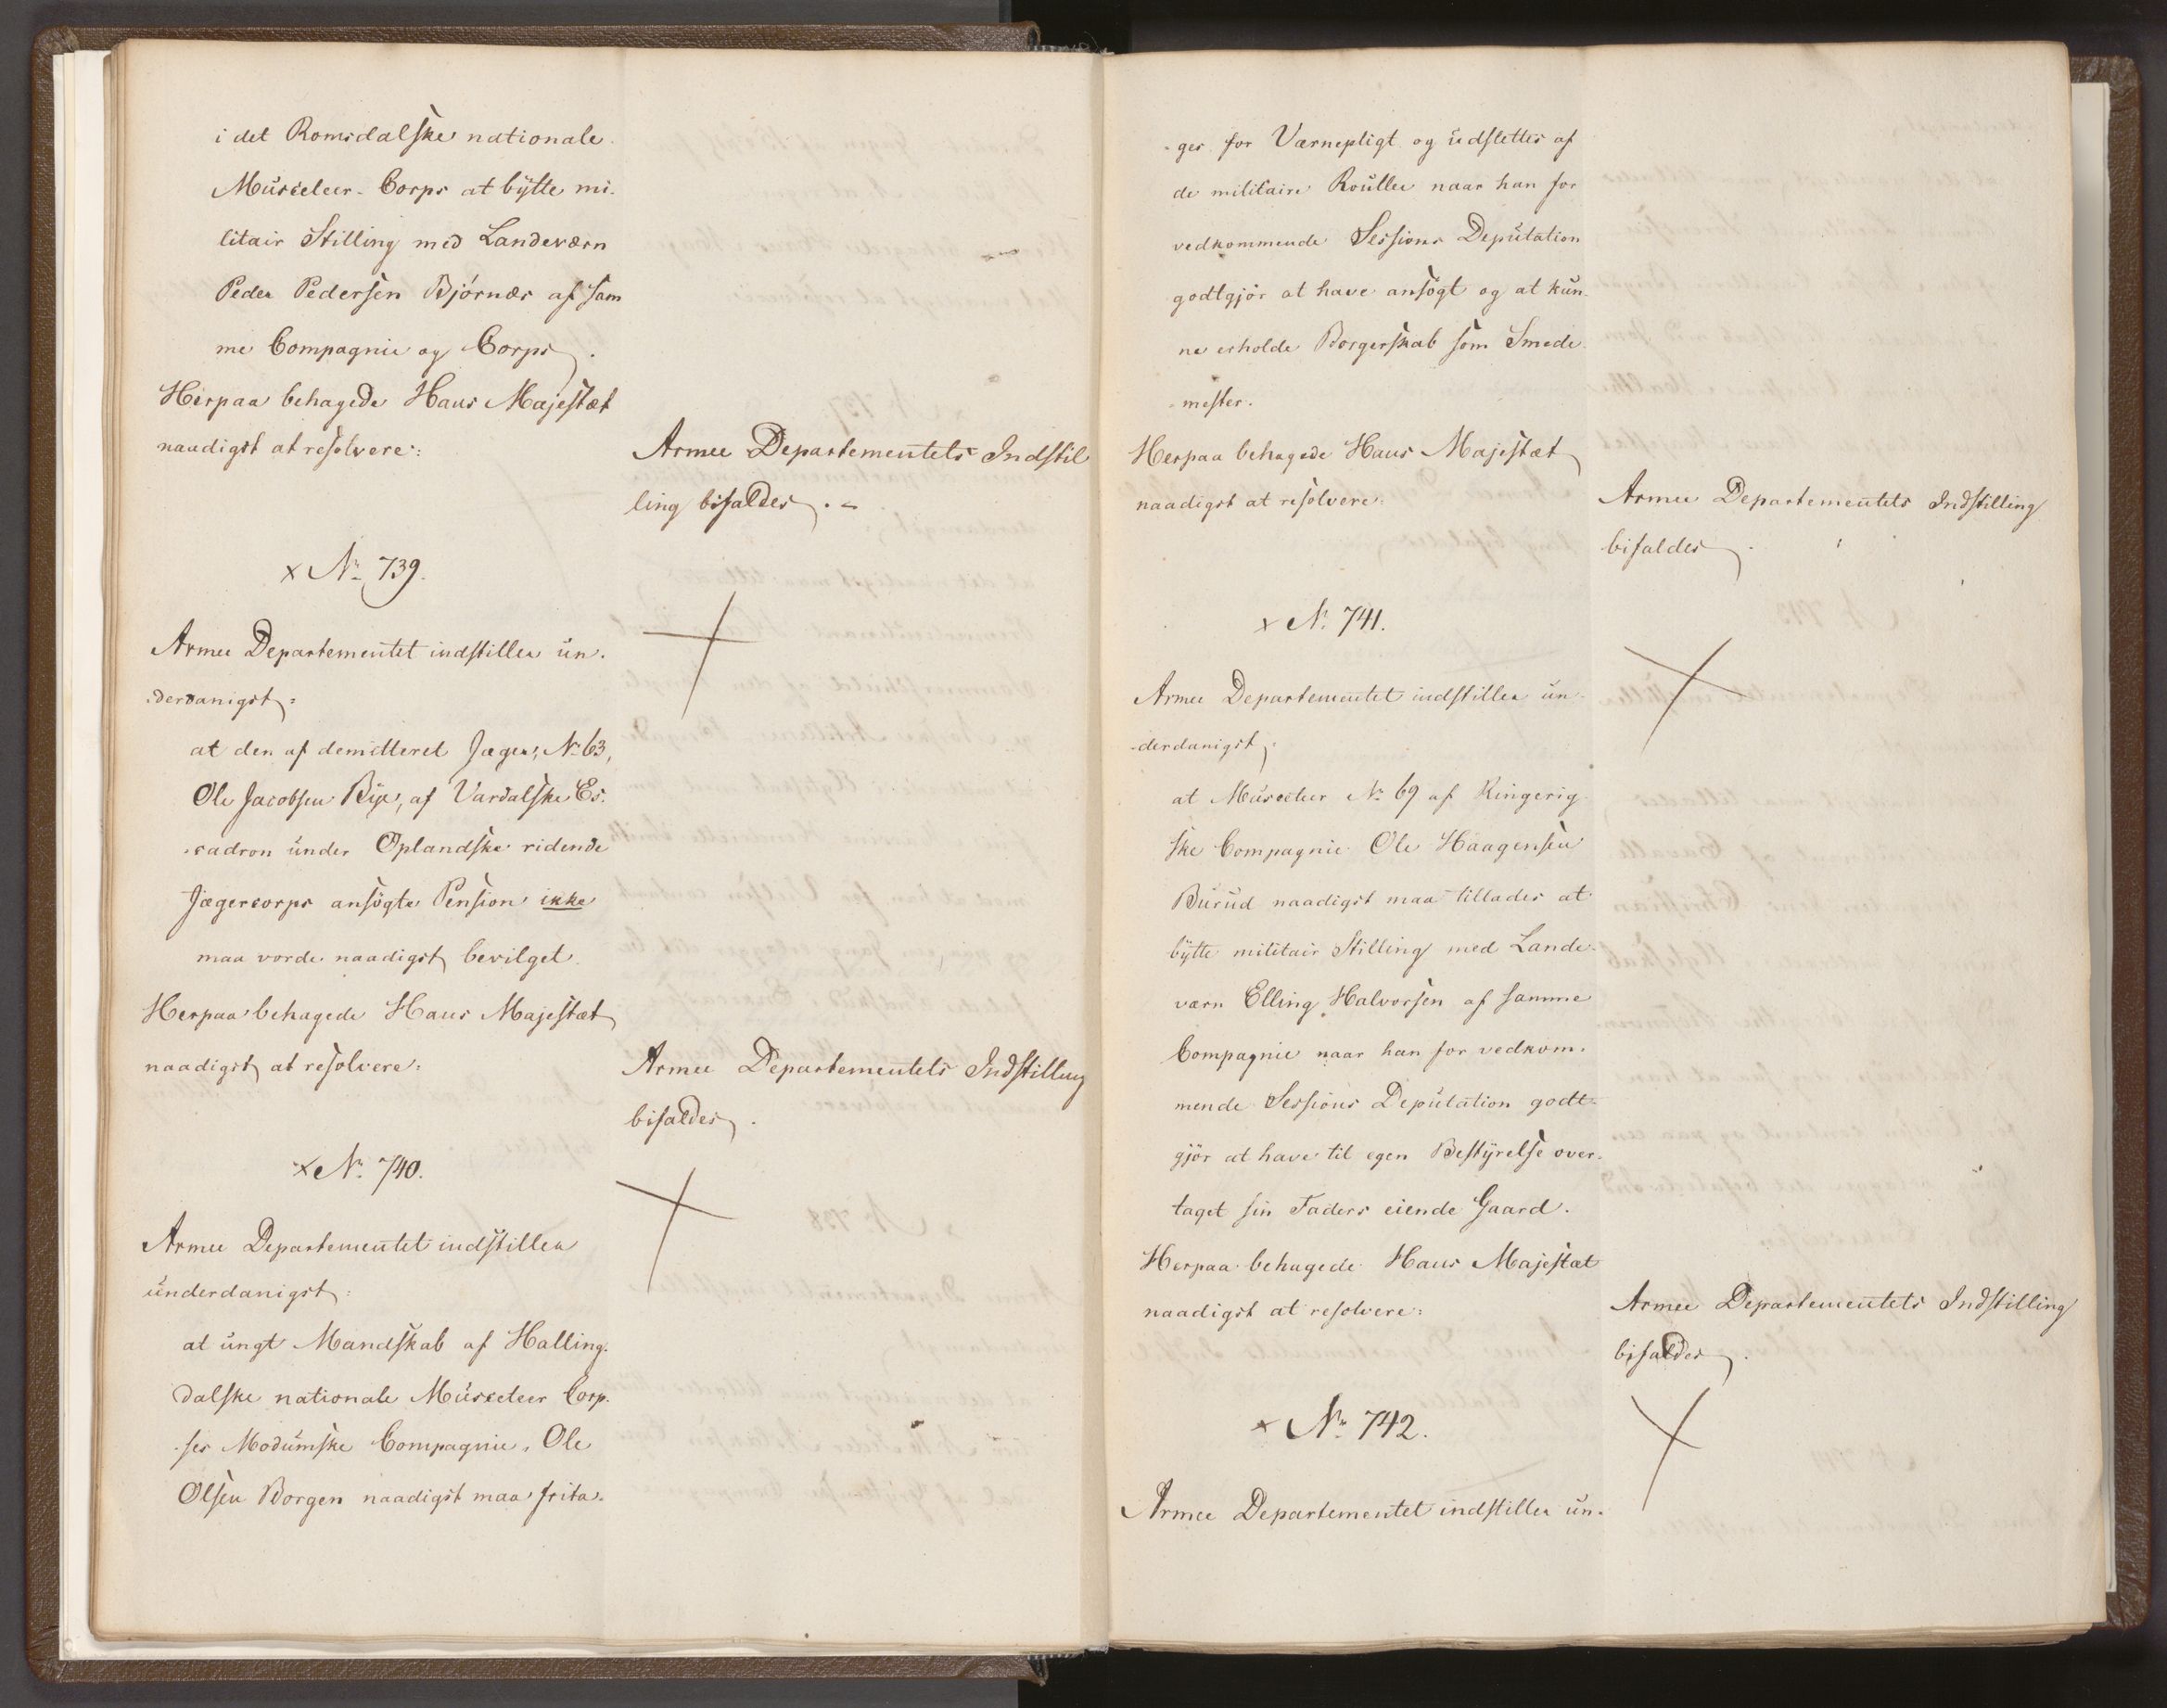 i det Romsdalske nationale
Musceteer-Corps at bytte mi-
litair Stilling med Landeværn
Peder Pedersen Bjørnæs af sam
me Compagnie og Corps.
Herpaa behagede Hans Majestæt
naadigst at resolvere:
Armee Departementets Indstil
ling bifaldes. -
x No 739.
Armee Departementet indstiller un-
-derdanigst:
at den af demitteret Jæger, No 63,
Ole Jacobsen Bye, af Vardalske Es-
-cadron under Oplandske ridende
Jægercorps ansøgte Pension ikke
maa vorde naadigst bevilget.
Herpaa behagede Hans Majestæt
naadigst at resolvere:
Armee Departementets Indstilling
bifaldes.
x No 740.
Armee Departementet indstiller
underdanigst:
at ungt Mandskab af Halling-
dalske nationale Musceteer Corp-
-ses Modumske Compagnie, Ole
Olsen Borgen naadigst maa frita-
-ges for Værnepligt og udslettes af
de militaire Rouller naar han for
vedkommende Sessions Deputation
godtgjør at have ansøgt og at kun-
ne erholde Borgerskab som Smede-
-mester.
Herpaa behagede Hans Majestæt
naadigst at resolvere:
Armee Departementets Indstilling
bifaldes.
x No 741.
Armee Departementet indstiller un-
-derdanigst:
at Musceteer No 69 af Ringerig-
ske Compagnie Ole Haagensen
Burud naadigst maa tillades at
bytte militair Stilling med Lande-
værn Elling Halvorsen af samme
Compagnie naar han for vedkom-
mende Sessions Deputation godt-
gjør at have til egen Bestyrelse over-
taget sin Faders eiende Gaard.
Herpaa behagede Hans Majestæt
naadigst at resolvere:
Armee Departementets Indstilling
bifaldes.
x No 742.
Armee Departementet indstiller un-